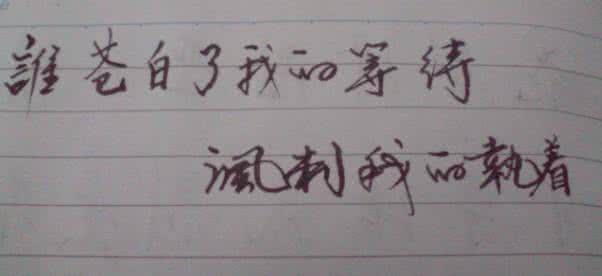 誰苍白了我的等待
讽刺我的執着